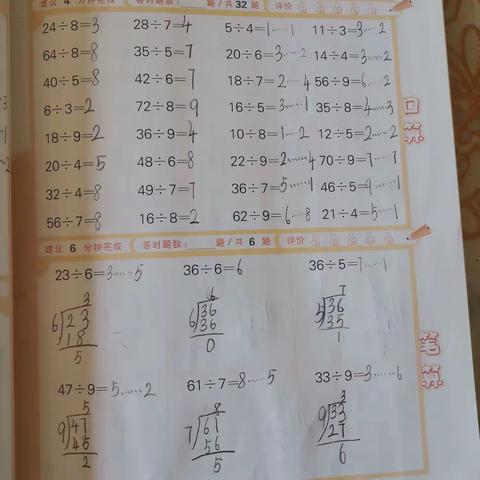 建议 4 分钟完成 答对题数： 题/共 32 题 评价
24÷8=3 28÷7=4 5÷4=1……1 11÷3=3……2
64÷8=8 35÷5=7 20÷6=3……2 14÷4=3……2
40÷5=8 42÷6=7 18÷7=2……4 56÷9=6……2
6÷3=2 72÷8=9 16÷5=3……1 35÷8=4……3
18÷9=2 36÷9=4 10÷8=1……2 12÷5=2……2
20÷4=5 48÷6=8 22÷9=2……4 70÷9=7……7
32÷4=8 49÷7=7 36÷7=5……1 46÷5=9……1
56÷7=8 16÷8=2 62÷9=6……8 21÷4=5……1
口算
建议 6 分钟完成 答对题数： 题/共 6 题 评价
23÷6=3……5 36÷6=6 36÷5=7……1
3 6 7
6 23 6 36 5 36
18 36 35
5 0 1
笔算
47÷9=5……2 61÷7=8……5 33÷9=3……6
5 8 3
9 47 7 61 9 33
45 56 27
2 5 6